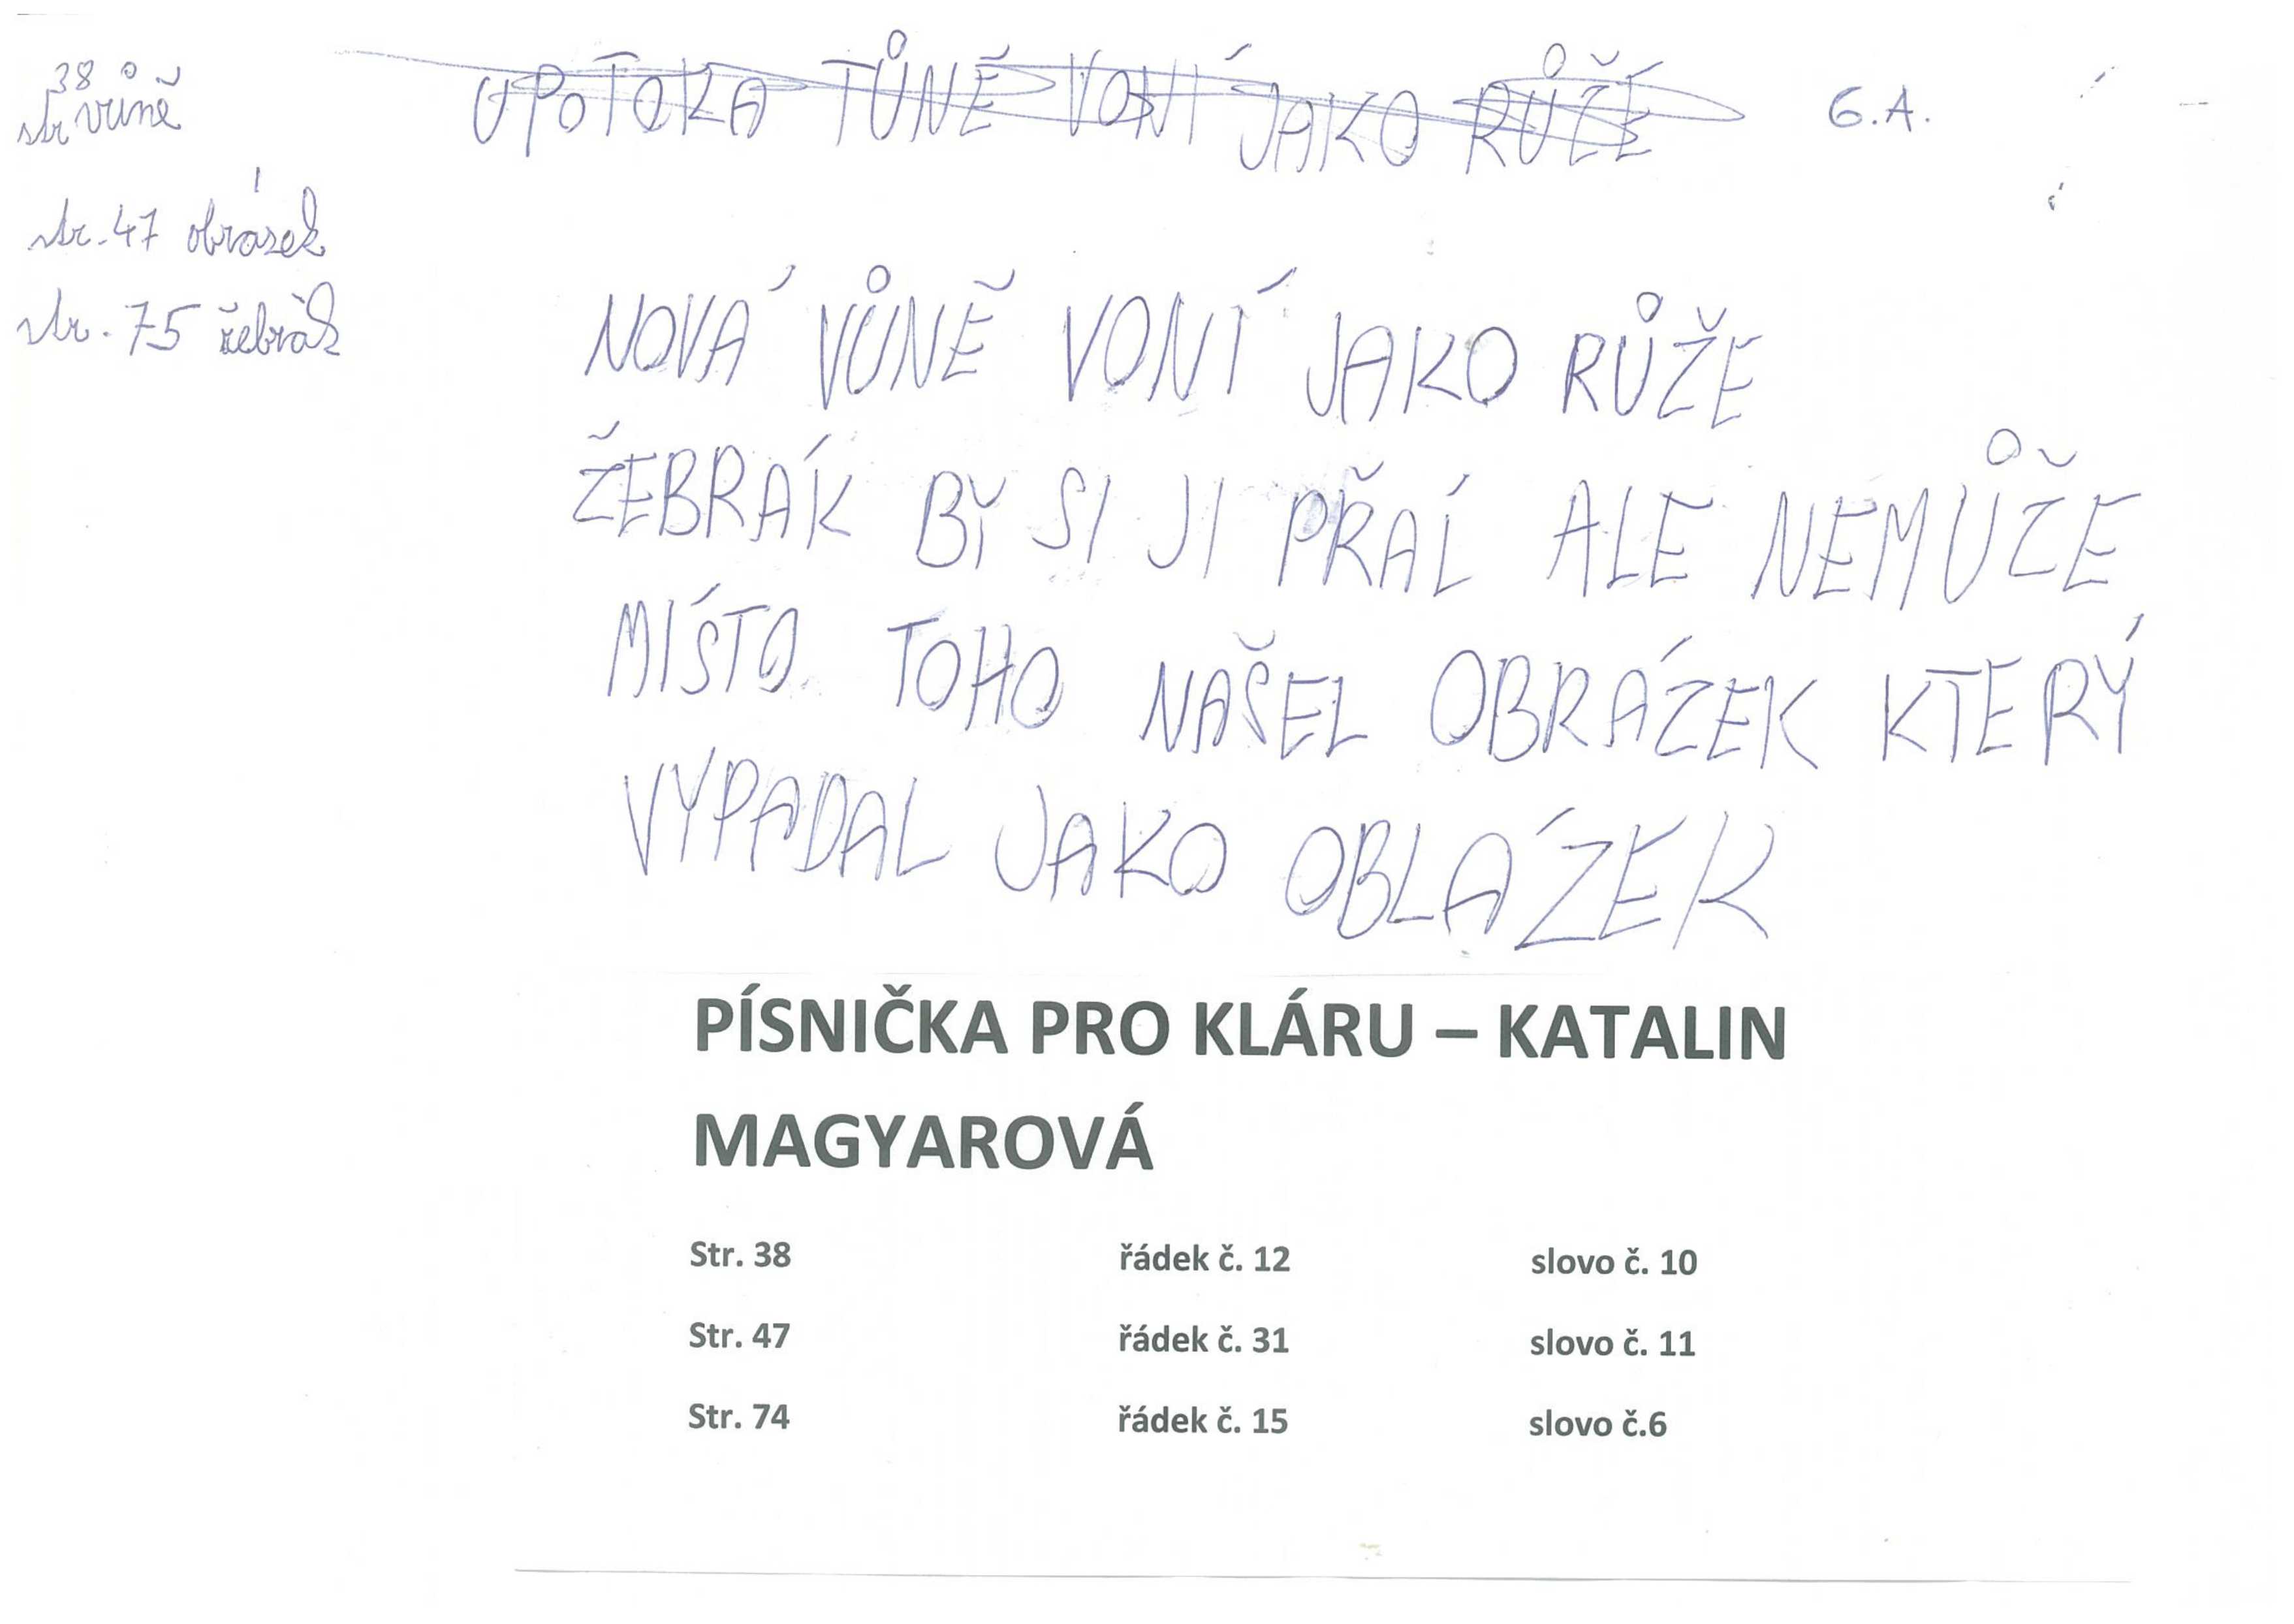 38
str vůně
str. 47 obrázek
str. 75 žebrák
U POTOKA TŮNĚ VONÍ JAKO RŮŽE
6.A.
NOVÁ VŮNĚ VONÍ JAKO RŮŽE
ŽEBRÁK BY SI JI PŘÁL ALE NEMŮŽE
MÍSTO TOHO NAŠEL OBRÁZEK KTERÝ
VYPADAL JAKO OBLÁZEK
PÍSNIČKA PRO KLÁRU – KATALIN
MAGYAROVÁ
Str. 38 řádek č. 12 slovo č. 10
Str. 47 řádek č. 31 slovo č. 11
Str. 74 řádek č. 15 slovo č.6